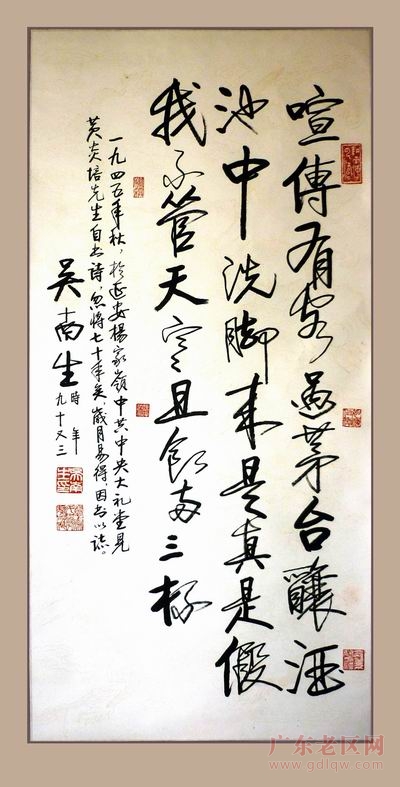 喧傳有客過茅台釀酒
池中洗脚来是真是假
我不管天寒且飲两三杯
一九四五年秋，於延安楊家嶺中共中央大礼堂見
黄炎培先生自书诗，忽将七十年矣，歲月易得，因书以誌。
吴南生
時年
九十又三
广东老区网
www.gdlqw.com